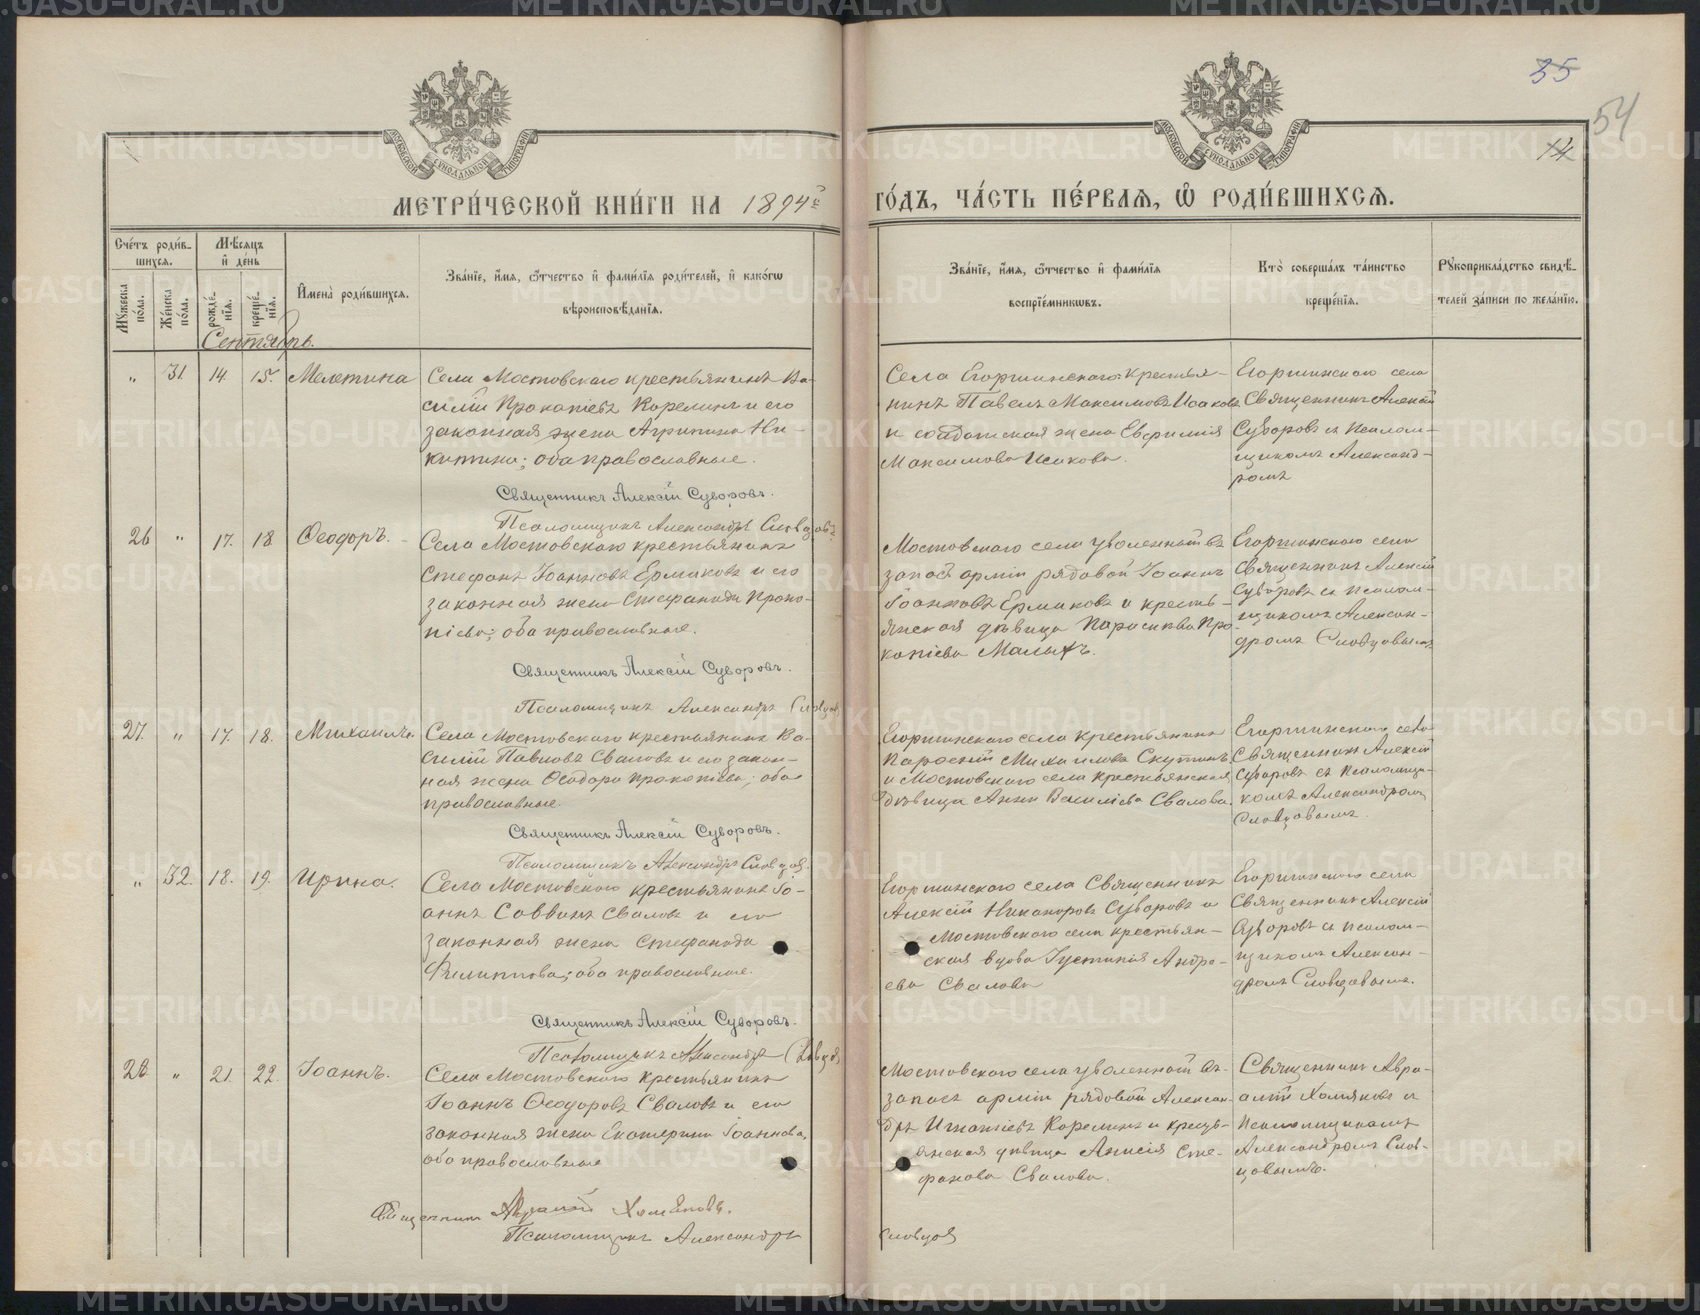 35
54
14
МОСКОВСКОЙ СѴНОДАЛЬНОЙ ТИПОГРАФІИ
МОСКОВСКОЙ СѴНОДАЛЬНОЙ ТИПОГРАФІИ
МЕТРИ́ЧЕСКОЙ КНИ́ГИ НА 1894й ГО́ДЪ, ЧА́СТЬ ПЕ́РВАЯ, Ѡ҆ РОДИ́ВШИХСЯ.
Сче́тъ роди́вшихся.
Мѣсяцъ и҆ де́нь
Мꙋ́жеска по́ла.
Же́нска по́ла.
рожде́нїѧ.
креще́нїѧ.
И҆мена̀ роди́вшихся.
Зва́нїе, и҆́мя, ѻ҆́тчество и҆ фами́лїя роди́телей, и҆ како́гѡ вѣроисповѣ́данїя.
Зва́нїе, и҆́мя, ѻ҆́тчество и҆ фами́лїя воспрїе́мниковъ.
Кто̀ соверша́лъ та́инство креще́нїя.
Рꙋкоприкла́дство свидѣ́телей за́писи по жела́нїю.
Сентябрь.
„ 31. 14. 15. Мелетина
Села Мостовскаго крестьянинъ Ва-
силій Прокопіевъ Корелинъ и его
законная жена Агрипина Ни-
китина; оба православные.
Священникъ Алексій Суворовъ.
Псаломщикъ Александръ Словцовъ
Села Егоршинскаго крестья-
нинъ Павелъ Максимовъ Исаковъ
и солдатская жена Евфимія
Максимова Исакова.
Егоршинскаго села
Священникъ Алексій
Суворовъ съ Псалом-
щикомъ Александ-
ромъ
26 „ 17. 18. Ѳеодоръ.
Села Мостовскаго крестьянинъ
Стефанъ Іоанновъ Ермаковъ и его
законная жена Стефанида Проко-
піева; оба православные.
Священникъ Алексій Суворовъ.
Псаломщикъ Александръ Словцовъ
Мостовскаго села уволенный въ
запасъ арміи рядовой Іоаннъ
Іоанновъ Ермаковъ и кресть-
янская дѣвица Параскева Про-
копіева Малыхъ.
Егоршинскаго села
Священникъ Алексій
Суворовъ съ псалом-
щикомъ Алексан-
дромъ Словцовымъ
27. „ 17. 18. Михаилъ.
Села Мостовскаго крестьянинъ Ва-
силій Павловъ Сваловъ и его закон-
ная жена Ѳеодора Прокопіева; оба
православные.
Священникъ Алексій Суворовъ.
Псаломщикъ Александръ Словцовъ.
Егоршинскаго села крестьянинъ
Михаиловъ Скутинъ
и Мостовскаго села крестьянская
дѣвица Анна Василіева Свалова.
Егоршинскаго села
Священникъ Алексій
Суворовъ съ псаломщи-
комъ Александромъ
Словцовымъ.
„ 32. 18. 19. Ирина.
Села Мостовскаго крестьянинъ Іо-
аннъ Саввинъ Сваловъ и его
законная жена Стефанида
Филиппова; оба православные.
Священникъ Алексій Суворовъ.
Псаломщикъ Александръ Словцовъ
Егоршинскаго села Священникъ
Алексій Никаноровъ Суворовъ и
Мостовскаго села крестьян-
ская вдова Іустинія Андре-
ева Свалова
Егоршинскаго села
Священникъ Алексій
Суворовъ съ псалом-
щикомъ Алексан-
дромъ Словцовымъ.
28. „ 21. 22. Іоаннъ.
Села Мостовскаго крестьянинъ
Іоаннъ Ѳеодоровъ Сваловъ и его
законная жена Екатерина Іоаннова,
оба православные
Священникъ Авраамій Хомяковъ.
Псаломщикъ Александръ Словцовъ
Мостовскаго села уволенный въ
запасъ арміи рядовой Алексан-
дръ Игнатіевъ Корелинъ и кресть-
янская дѣвица Анисія Сте-
фанова Свалова.
Священникъ Авра-
амій Хомяковъ съ
Псаломщикомъ
Александромъ Слов-
цовымъ.
METRIKI.GASO-URAL.RU